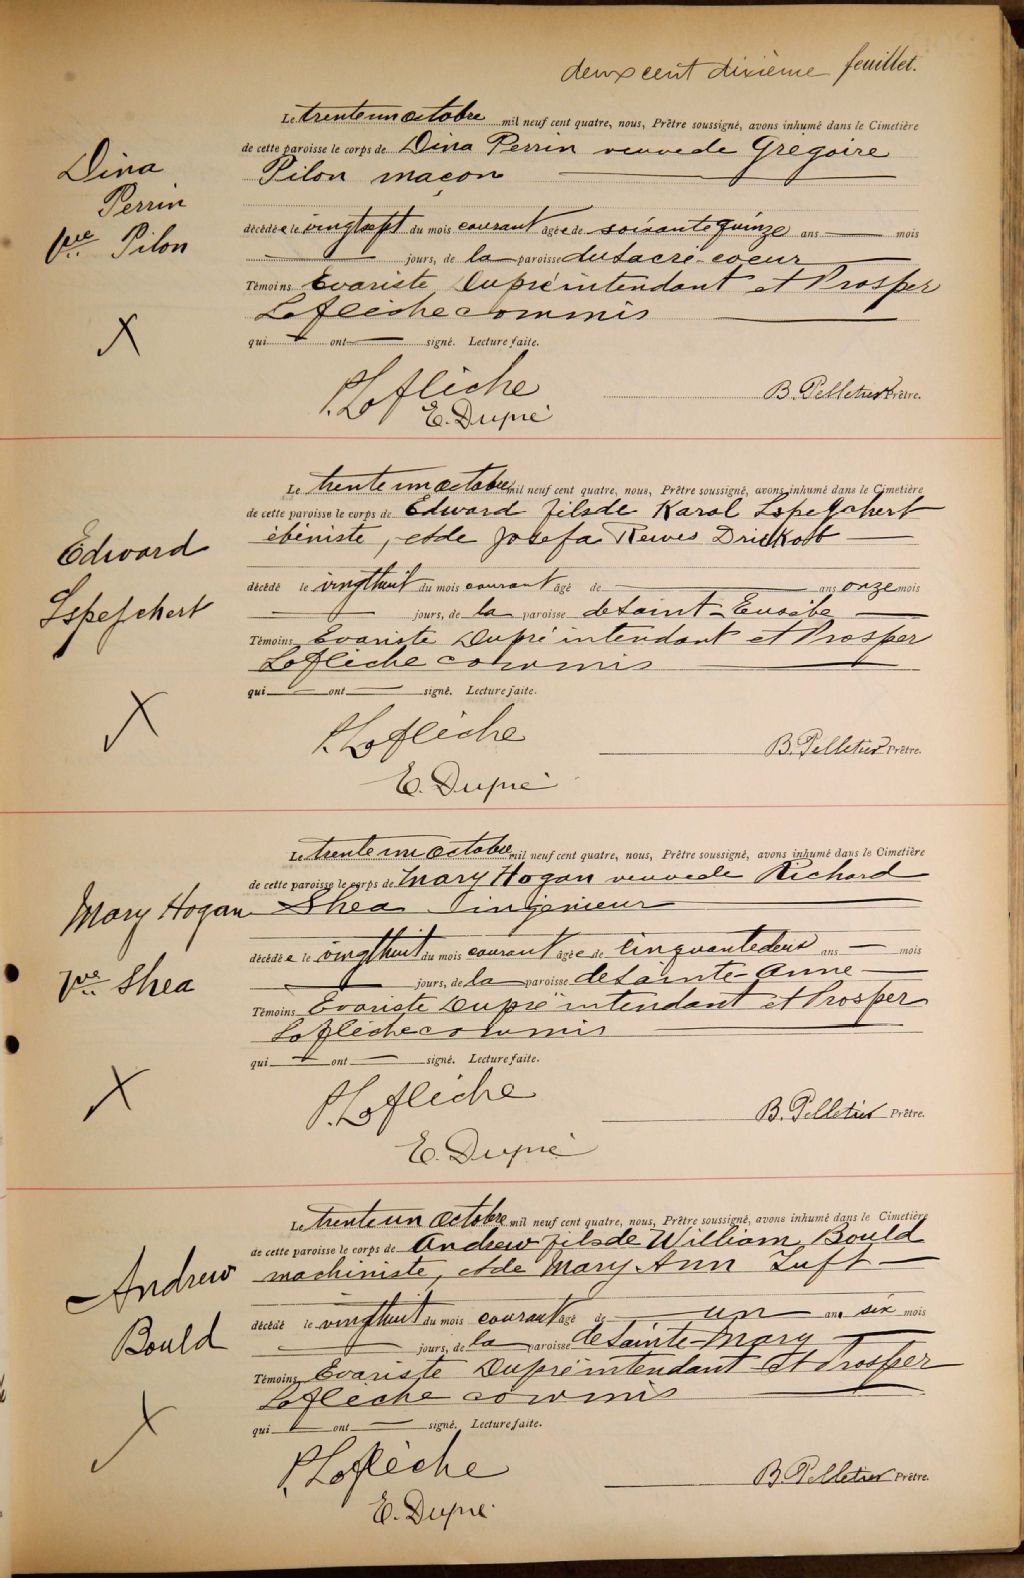 deux cent dixième feuillet.
Le trente un octobre mil neuf cent quatre, nous, Prêtre soussigné, avons inhumé dans le Cimetière
de cette paroisse le corps de Dina Perrin veuve de Grégoire
Pilon maçon
Dina
Perrin
Vve Pilon
décédée le vingt sept du mois courant âgée de soixante quinze ans mois
jours, de la paroisse du Sacré-coeur
Témoins Evariste Dupré intendant et Prosper
Laflèche commis
qui ont signé. Lecture faite.
X
P. Laflèche
B. Pelletier Prêtre.
E. Dupré
Le trente un octobre mil neuf cent quatre, nous, Prêtre soussigné, avons inhumé dans le Cimetière
de cette paroisse le corps de Edward fils de Karol
ébéniste, et de Josefa
Edward
décédé le vingt huit du mois courant âgé de ans onze mois
jours, de la paroisse de Saint-Eusèbe
Témoins Evariste Dupré intendant et Prosper
Laflèche commis
qui ont signé. Lecture faite.
X
P. Laflèche
B. Pelletier Prêtre.
E. Dupré
Le trente un octobre mil neuf cent quatre, nous, Prêtre soussigné, avons inhumé dans le Cimetière
de cette paroisse le corps de Mary Hogan veuve de Richard
Shea ingénieur
Mary Hogan
Vve Shea
décédée le vingt huit du mois courant âgée de cinquante deux ans mois
jours, de la paroisse de Sainte-Anne
Témoins Evariste Dupré intendant et Prosper
Laflèche commis
qui ont signé. Lecture faite.
X
P. Laflèche
B. Pelletier Prêtre.
E. Dupré
Le trente un octobre mil neuf cent quatre, nous, Prêtre soussigné, avons inhumé dans le Cimetière
de cette paroisse le corps de Andrew fils de William Bould
machiniste, et de Mary Ann Tuft
Andrew
Bould
décédé le vingt huit du mois courant âgé de un an six mois
jours, de la paroisse de Sainte-Mary
Témoins Evariste Dupré intendant et Prosper
Laflèche commis
qui ont signé. Lecture faite.
X
P. Laflèche
B. Pelletier Prêtre.
E. Dupré